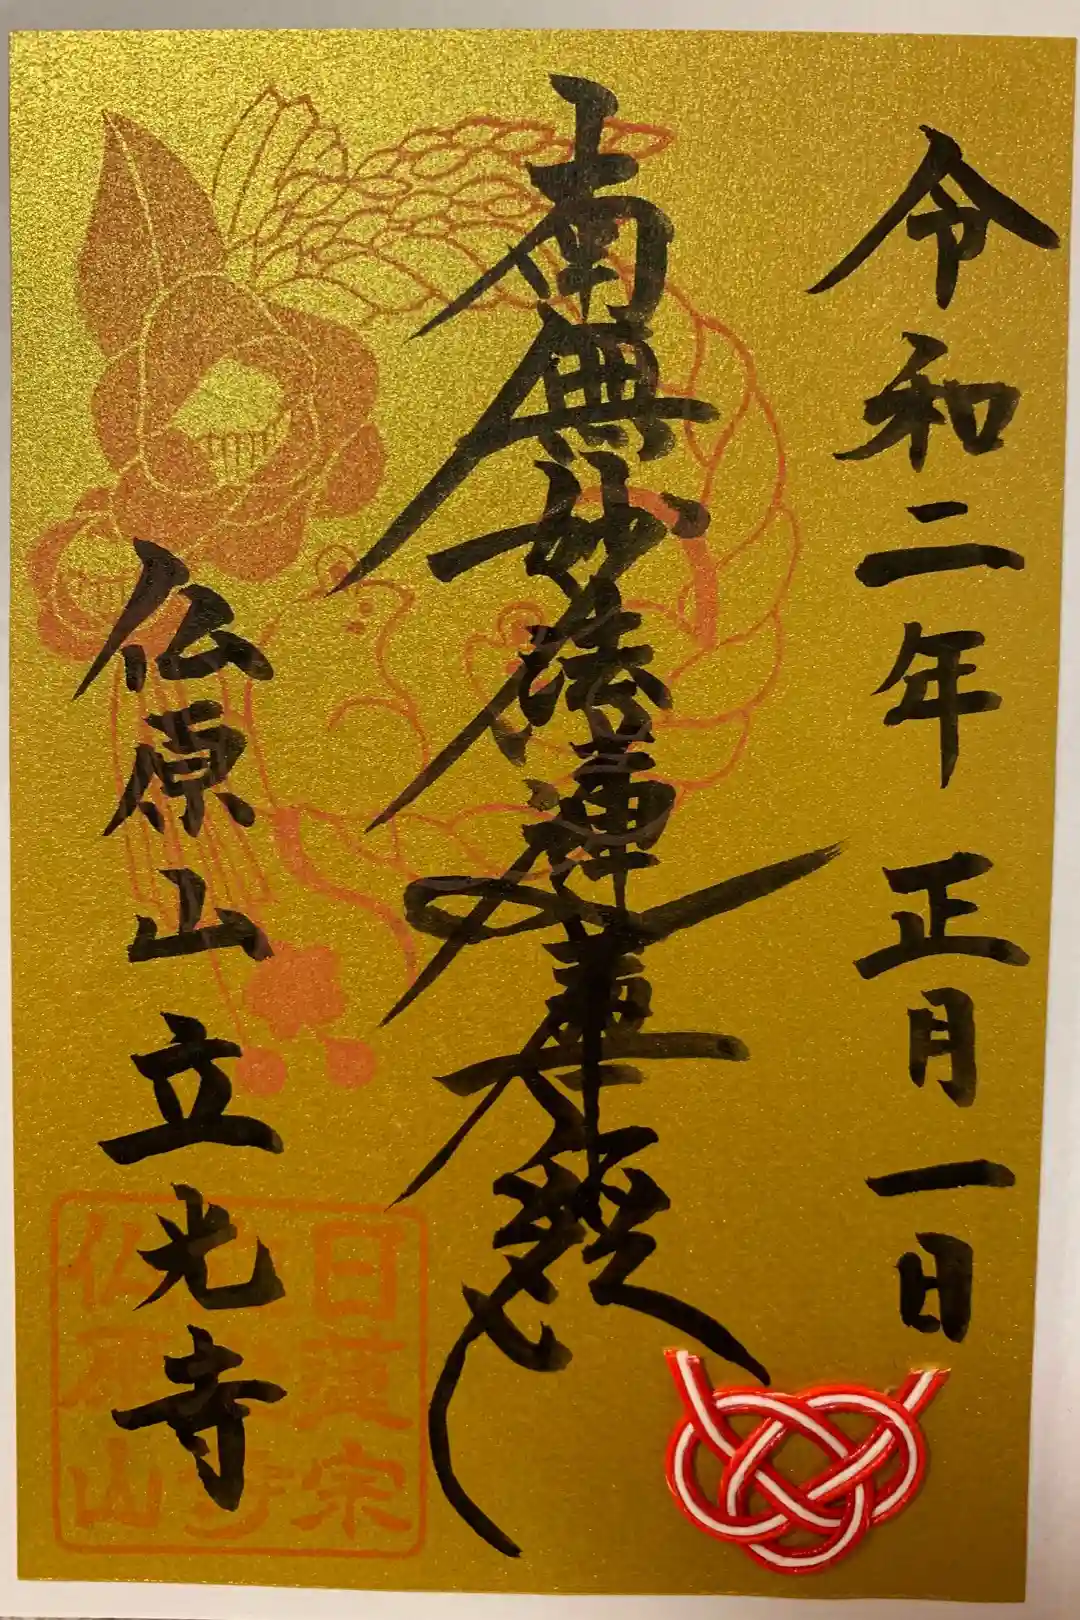 令和二年 正月一日
南無妙法蓮華経
仏原山 立光寺
日蓮宗
立光寺
仏原山